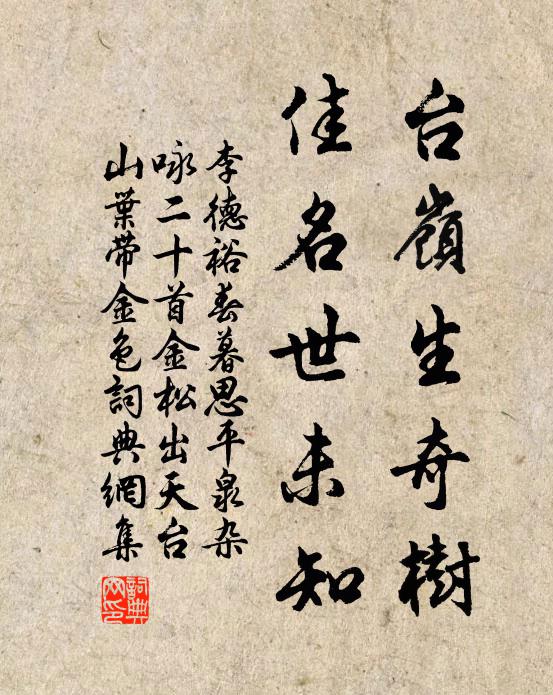 台嶺生奇樹
佳名世未知
李德裕春暮思平泉杂
咏二十首金松出天台
山葉带金色詞典網集
詞典
网印